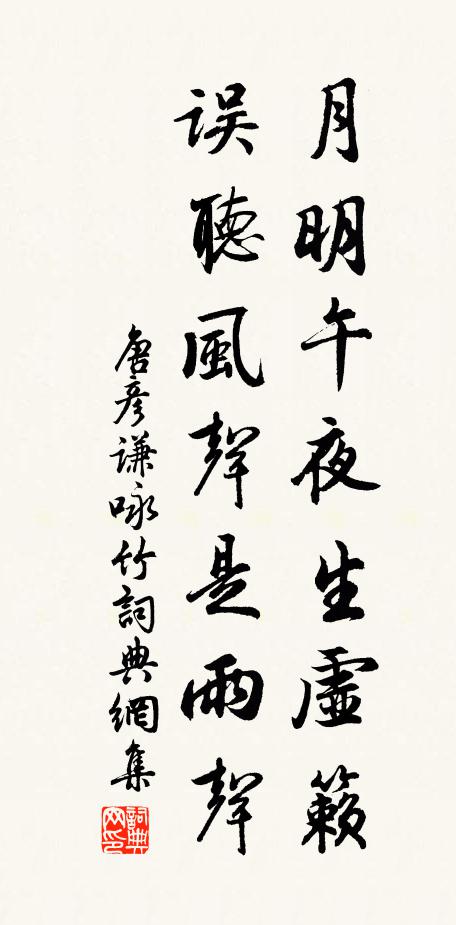 月明午夜生虛籟
误聽風聲是雨聲
唐彥謙咏竹詞典網集
詞典网印